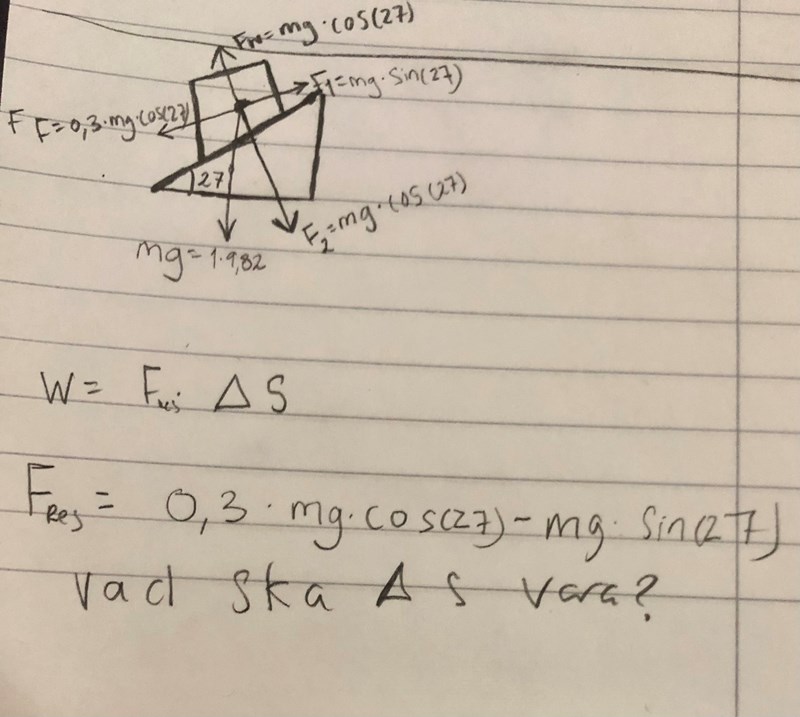 FN=mg·cos(27)
F1=mg·sin(27)
F F=0,3·mg·cos(27)
27
F2=mg·cos(27)
mg=1·9,82
W= Fres ΔS
FRes= 0,3·mg·cos(27)-mg·sin(27)
vad ska Δs vara?